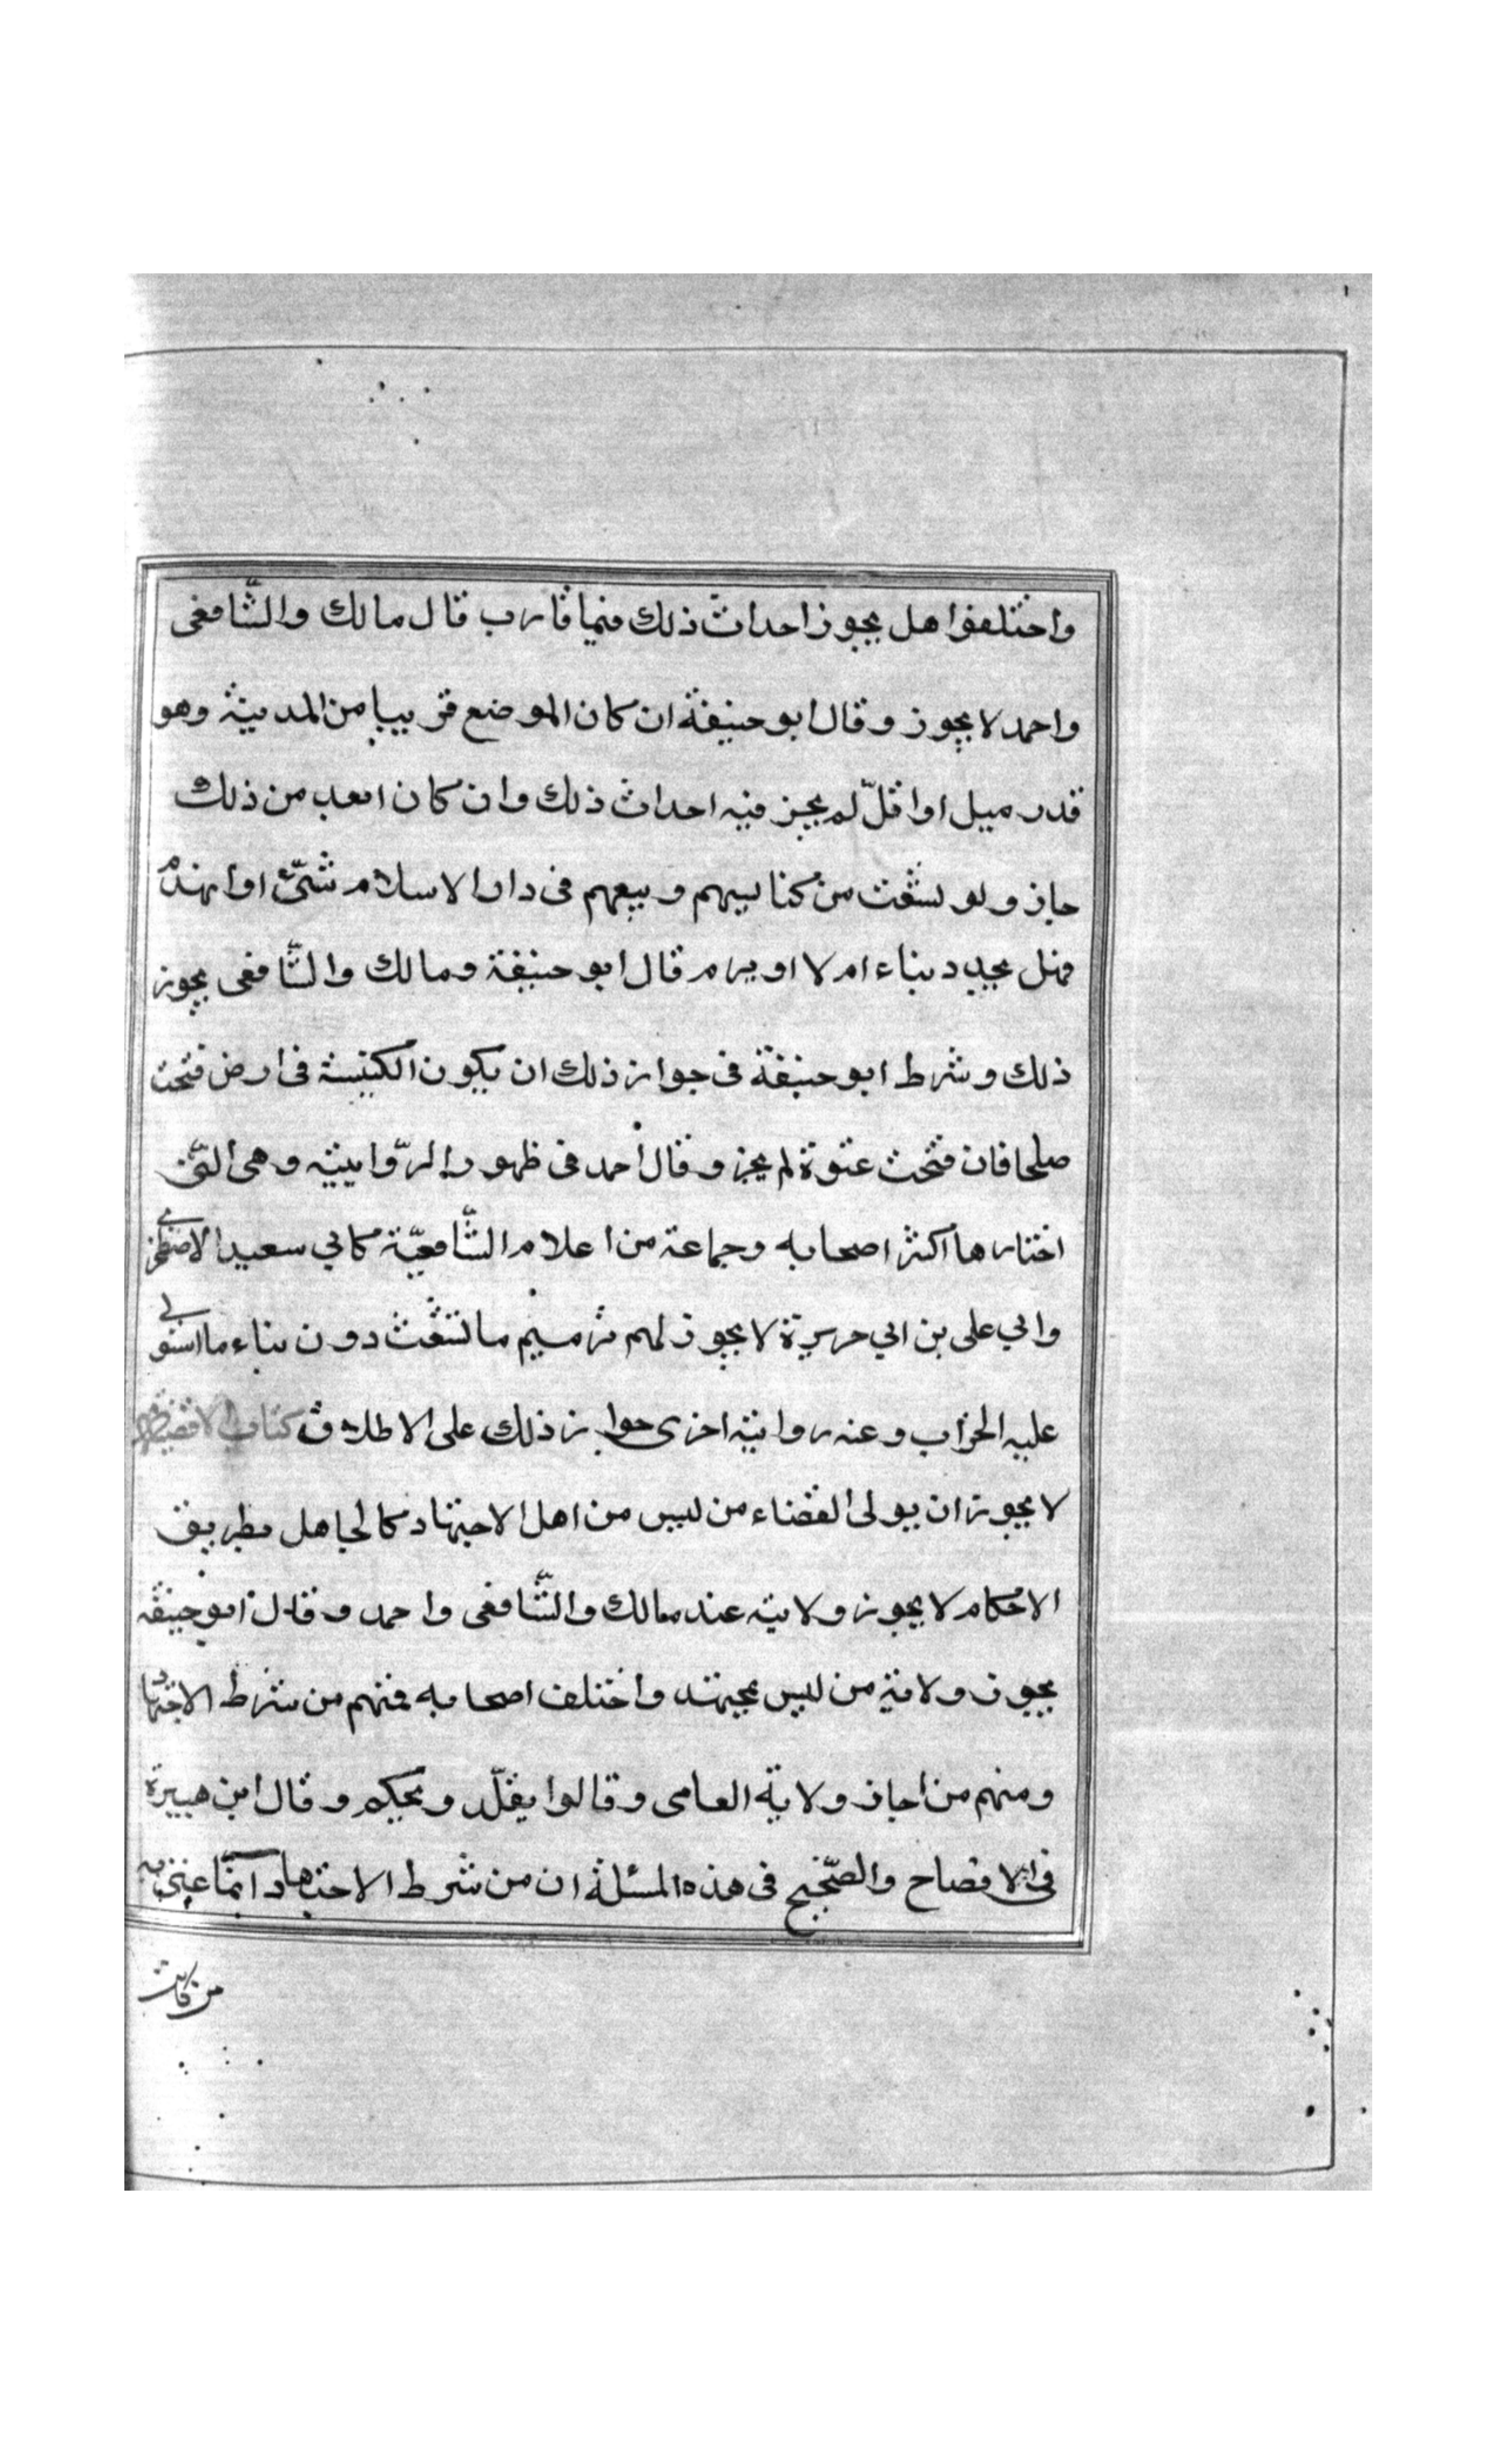 واختلفوا هل يجوز احداث ذلك فيما قارب قال مالك والشّافعى
واحمد لا يجوز وقال ابو حنيفة ان كان الموضع قريبا من المدينة وهو
قدر ميل او اقلّ لم يجز فيه احداث ذلك وان كان ابعد من ذلك
جاز ولو تشعّث من كنايسهم وبيعهم فى دار الاسلام شىّء او انهدم
فهل يجدد بناء ام لا او يرم قال ابو حنيفة ومالك والشّافعى يجوز
ذلك وشرط ابو حنيفة فى جواز ذلك ان يكون الكنيسة فى ارض فتحت
صلحا فان فتحت عنوة لم يجز وقال احمد فى ظهور الرّوايية وهى الّتى
اختارها اكثر اصحابه وجماعة من اعلام الشّافعيّة كابي سعيد الاصطخرى
وابي على بن ابي هريرة لا يجوز لهم ترميم ما تشعّث دون بناء ما استولى
عليه الخراب وعنه رواية اخرى جواز ذلك على الاطلاق كتاب الاقضية
لا يجوز ان يولى القضاء من ليس من اهل الاجتهاد كالجاهل بطريق
الاحكام لا يجوز ولاية عند مالك والشّافعى واحمد وقال ابو حنيفة
يجوز ولاية من ليس بمجتهد واختلف اصحابه فمنهم من شرط الاجتهاد
ومنهم من اجاز ولاية العامى وقالوا يقلّد ويحكم وقال ابن هبيرة
فى الافصاح والصّحيح فى هذه المسئلة ان من شرط الاجتهاد انمّا عنى به
من كانت